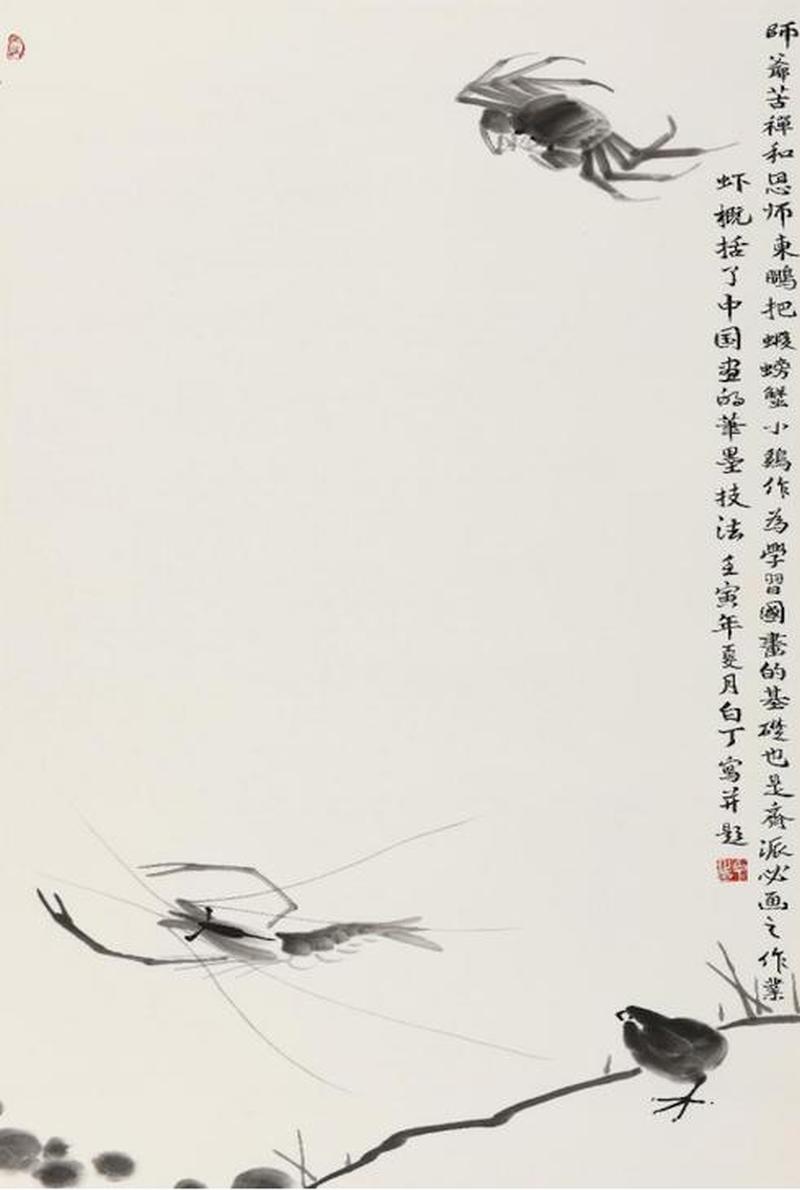 師爺苦禪和恩师東鵬把蝦螃蟹小鷄作為學習國畫的基礎也是齋派必画之作業
虾概括了中国画的筆墨技法壬寅年夏月白丁寫并题